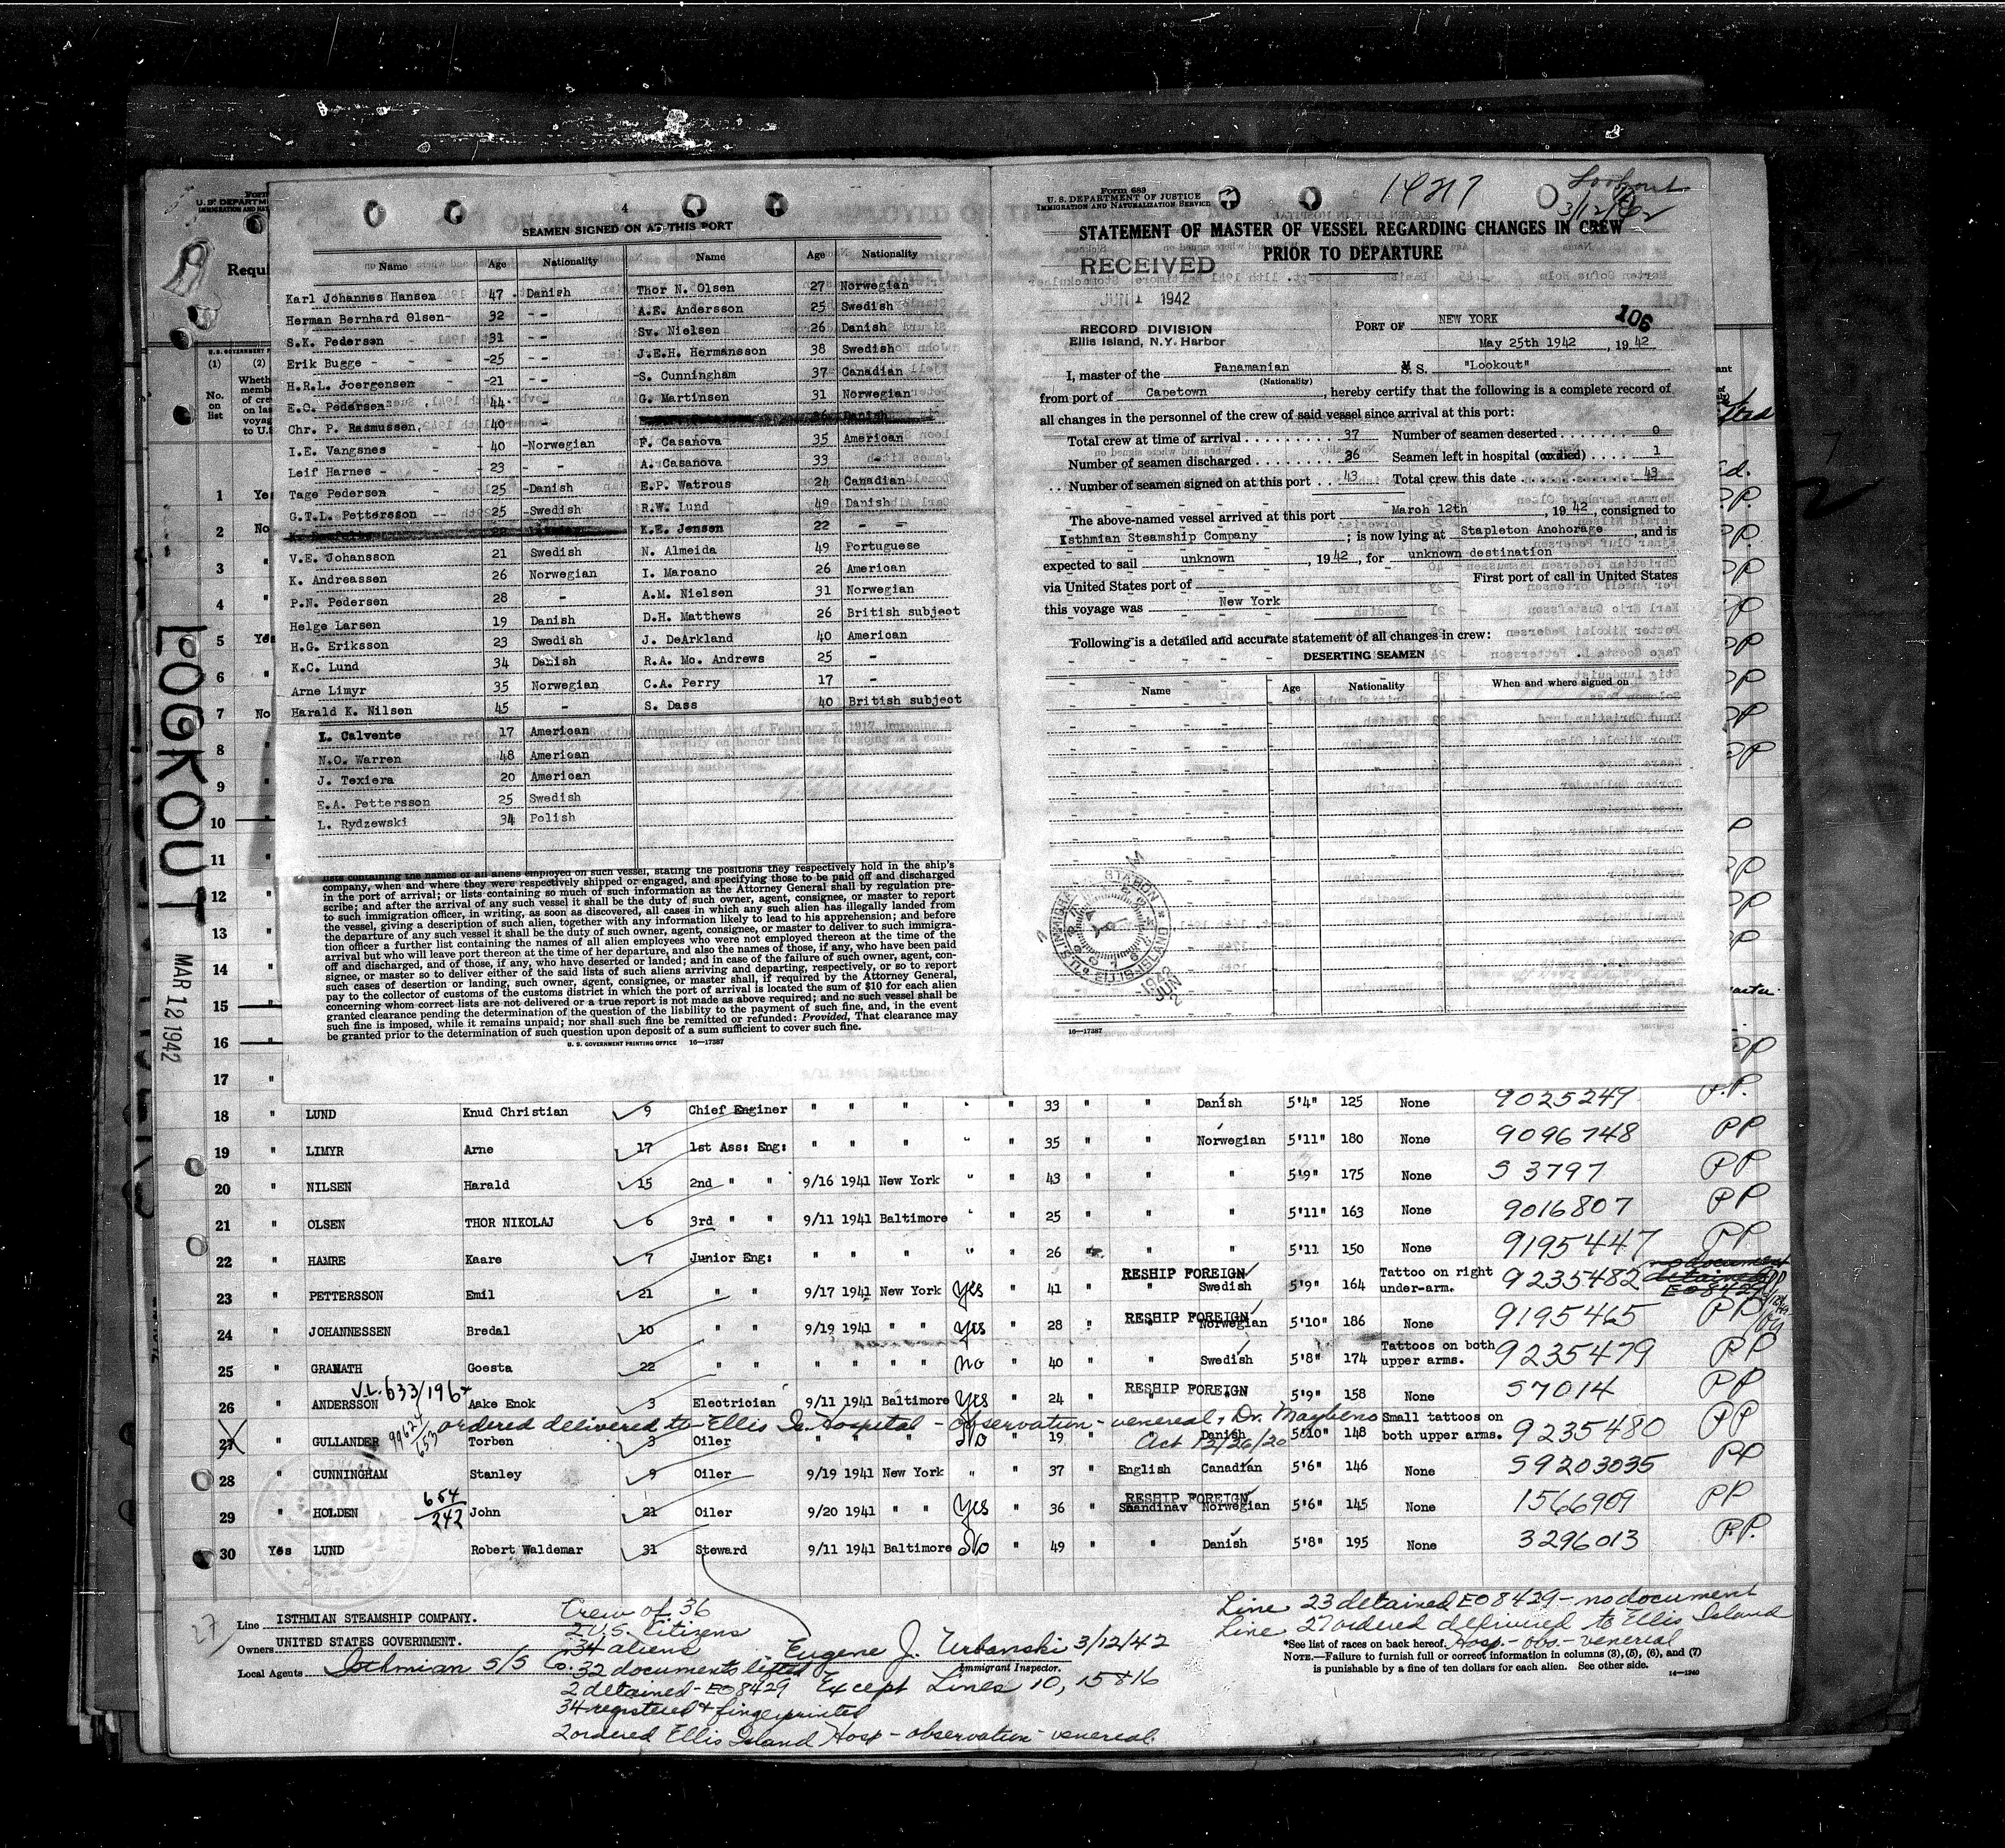 4
SEAMEN SIGNED ON AT THIS PORT
Name Age Nationality Name Age Nationality
Karl Johannes Hansen 47 Danish Thor N. Olsen 27 Norwegian
Herman Bernhard Olsen 32 - - A.E. Andersson 25 Swedish
S.K. Pedersen 31 - - Sv. Nielsen 26 Danish
Erik Bugge 25 - - J.E.H. Hermansson 38 Swedish
H.R.L. Joergensen 21 - - S. Cunningham 37 Canadian
E.C. Pedersen 44 G. Martinsen 31 Norwegian
Chr. P. Rasmussen, 40 - 36 Danish
I.E. Vangsnes 40 Norwegian F. Casanova 35 American
Leif Harnes 23 - - A. Casanova 33
Tage Pedersen 25 Danish E.P. Watrous 24 Canadian
G.T.L. Pettersson 25 Swedish R.W. Lund 49 Danish
K.E. Jensen 22 - -
V.E. Johansson 21 Swedish N. Almeida 49 Portuguese
K. Andreassen 26 Norwegian I. Marcano 26 American
P.N. Pedersen 28 - A.M. Nielsen 31 Norwegian
Helge Larsen 19 Danish D.H. Matthews 26 British subject
H.G. Eriksson 23 Swedish J. DeArkland 40 American
K.C. Lund 34 Danish R.A. Mc. Andrews 25 -
Arne Limyr 35 Norwegian C.A. Perry 17 -
Harald K. Nilsen 45 - S. Dass 40 British subject
L. Calvente 17 American
N.O. Warren 48 American
J. Texiera 20 American
E.A. Pettersson 25 Swedish
L. Rydzewski 34 Polish
lists containing the names of all aliens employed on such vessel, stating the positions they respectively hold in the ship's
company, when and where they were respectively shipped or engaged, and specifying those to be paid off and discharged
in the port of arrival; or lists containing so much of such information as the Attorney General shall by regulation pre-
scribe; and after the arrival of any such vessel it shall be the duty of such owner, agent, consignee, or master to report
to such immigration officer, in writing, as soon as discovered, all cases in which any such alien has illegally landed from
the vessel, giving a description of such alien, together with any information likely to lead to his apprehension; and before
the departure of any such vessel it shall be the duty of such owner, agent, consignee, or master to deliver to such immigra-
tion officer a further list containing the names of all alien employees who were not employed thereon at the time of the
arrival but who will leave port thereon at the time of her departure, and also the names of those, if any, who have been paid
off and discharged, and of those, if any, who have deserted or landed; and in case of the failure of such owner, agent, con-
signee, or master so to deliver either of the said lists of such aliens arriving and departing, respectively, or so to report
such cases of desertion or landing, such owner, agent, consignee, or master shall, if required by the Attorney General,
pay to the collector of customs of the customs district in which the port of arrival is located the sum of $10 for each alien
concerning whom correct lists are not delivered or a true report is not made as above required; and no such vessel shall be
granted clearance pending the determination of the question of the liability to the payment of such fine, and, in the event
such fine is imposed, while it remains unpaid; nor shall such fine be remitted or refunded: Provided, That clearance may
be granted prior to the determination of such question upon deposit of a sum sufficient to cover such fine.
U. S. GOVERNMENT PRINTING OFFICE 16—17387
Form 689
U. S. DEPARTMENT OF JUSTICE
IMMIGRATION AND NATURALIZATION SERVICE
14217
Lookout
3/12/42
STATEMENT OF MASTER OF VESSEL REGARDING CHANGES IN CREW
PRIOR TO DEPARTURE
RECEIVED
JUN 1 1942
RECORD DIVISION
Ellis Island, N.Y. Harbor
PORT OF NEW YORK
106
May 25th 1942, 19 42
I, master of the Panamanian M. S. "Lookout"
(Nationality)
from port of Capetown, hereby certify that the following is a complete record of
all changes in the personnel of the crew of said vessel since arrival at this port:
Total crew at time of arrival 37 Number of seamen deserted 0
Number of seamen discharged 36 Seamen left in hospital (or died) 1
Number of seamen signed on at this port 43 Total crew this date 43
The above-named vessel arrived at this port March 12th, 19 42, consigned to
Isthmian Steamship Company; is now lying at Stapleton Anchorage, and is
expected to sail unknown, 19 42, for unknown destination
via United States port of First port of call in United States
this voyage was New York
Following is a detailed and accurate statement of all changes in crew:
DESERTING SEAMEN
Name Age Nationality When and where signed on
16—17387
LOOKOUT
MAR 12 1942
(1) (2)
No. on list
1 Yes
2 No
3 "
4 "
5 Yes
6 "
7 No
8 "
9 "
10 "
11 "
12 "
13 "
14 "
15 "
16 "
17 "
18 " LUND Knud Christian 9 Chief Enginer " " " " " 33 " " Danish 5'4" 125 None 9025249 P.P.
19 " LIMYR Arne 17 1st Ass: Eng: " " " " " 35 " " Norwegian 5'11" 180 None 9096748 PP
20 " NILSEN Harald 15 2nd " " 9/16 1941 New York " " 43 " " " 5'9" 175 None S 3797 PP
21 " OLSEN THOR NIKOLAJ 6 3rd " " 9/11 1941 Baltimore " " 25 " " " 5'11" 163 None 9016807 PP
22 " HAMRE Kaare 7 Junior Eng: " " " " " 26 " " " 5'11 150 None 9195447 PP
23 " PETTERSSON Emil 21 " " 9/17 1941 New York Yes " 41 " RESHIP FOREIGN " Swedish 5'9" 164 Tattoo on right under-arm. 9235482 no document detained EO8429 PP
24 " JOHANNESSEN Bredal 10 " " 9/19 1941 " " Yes " 28 " RESHIP FOREIGN Norwegian 5'10" 186 None 9195465 PP
25 " GRANATH Goesta 22 " " " " " " no " 40 " " Swedish 5'8" 174 Tattoos on both upper arms. 9235479 PP
V.L. 633/196
26 " ANDERSSON Aake Enok 3 Electrician 9/11 1941 Baltimore Yes " 24 " RESHIP FOREIGN " " 5'9" 158 None S7014 PP
ordered delivered to Ellis Is. Hospital - observation - venereal, Dr.
27 " GULLANDER 99624/653 Torben 3 Oiler " " " No " 19 " Act 12/26/20 Danish 5'10" 148 Small tattoos on both upper arms. 9235480 PP
28 " CUNNINGHAM Stanley 9 Oiler 9/19 1941 New York " " 37 " English Canadian 5'6" 146 None S9203035 PP
29 " HOLDEN 654/242 John 21 Oiler 9/20 1941 " " Yes " 36 " RESHIP FOREIGN Skandinav Norwegian 5'6" 145 None 1566909 PP
30 Yes LUND Robert Waldemar 31 Steward 9/11 1941 Baltimore No " 49 " " Danish 5'8" 195 None 3296013 P.P.
27
Line ISTHMIAN STEAMSHIP COMPANY.
Owners UNITED STATES GOVERNMENT.
Local Agents Isthmian S/S Co.
Crew of 36
2 U.S. Citizens
34 aliens
32 documents listed
2 detained - EO 8429
34 registered & fingerprinted
2 ordered Ellis Island Hosp - observation - venereal.
Eugene J. Urbanski 3/12/42
Immigrant Inspector.
Except Lines 10, 15 & 16
Line 23 detained EO 8429 - no document
Line 27 ordered delivered to Ellis Island
Hosp. - obs. - venereal
*See list of races on back hereof.
NOTE.—Failure to furnish full or correct information in columns (3), (5), (6), and (7)
is punishable by a fine of ten dollars for each alien. See other side.
14—1240